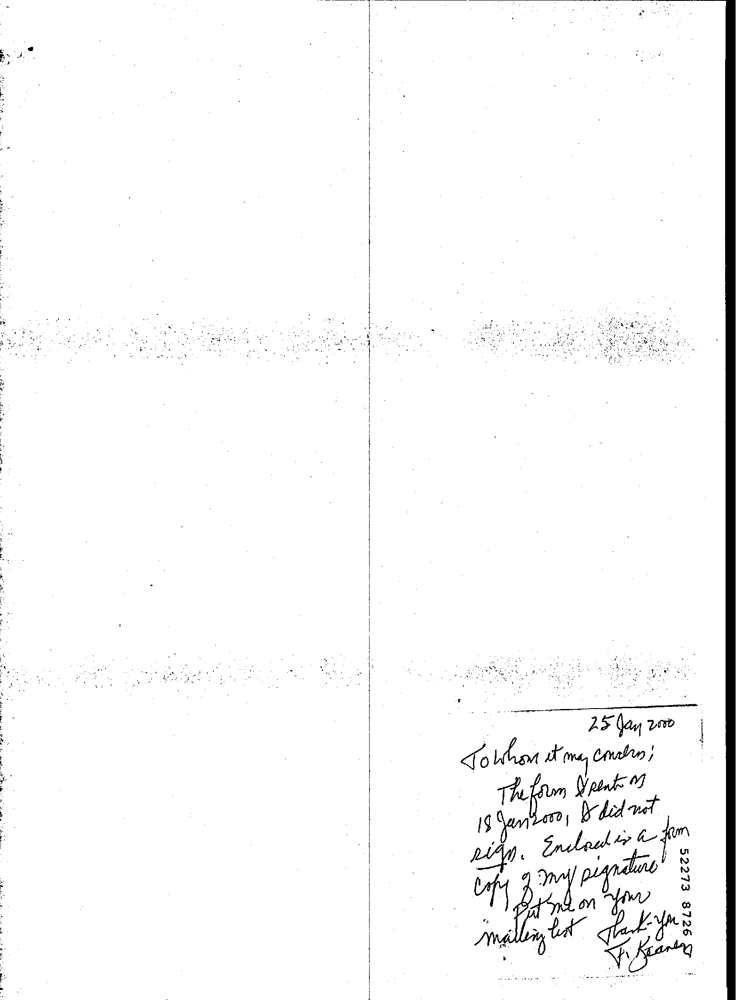 25 Jan 2000
To Whom it may concern;
The form I sent on
18 Jan 2000, I did not
sign. Enclosed is a form
copy of my signature
Put me on your
mailing list Thank-you
52273 8726